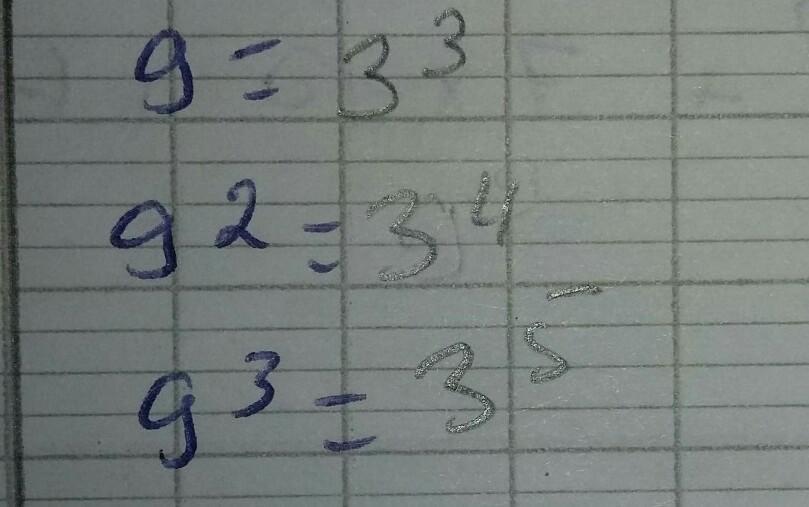 9 = 3³
9² = 3⁴
9³ = 3⁵